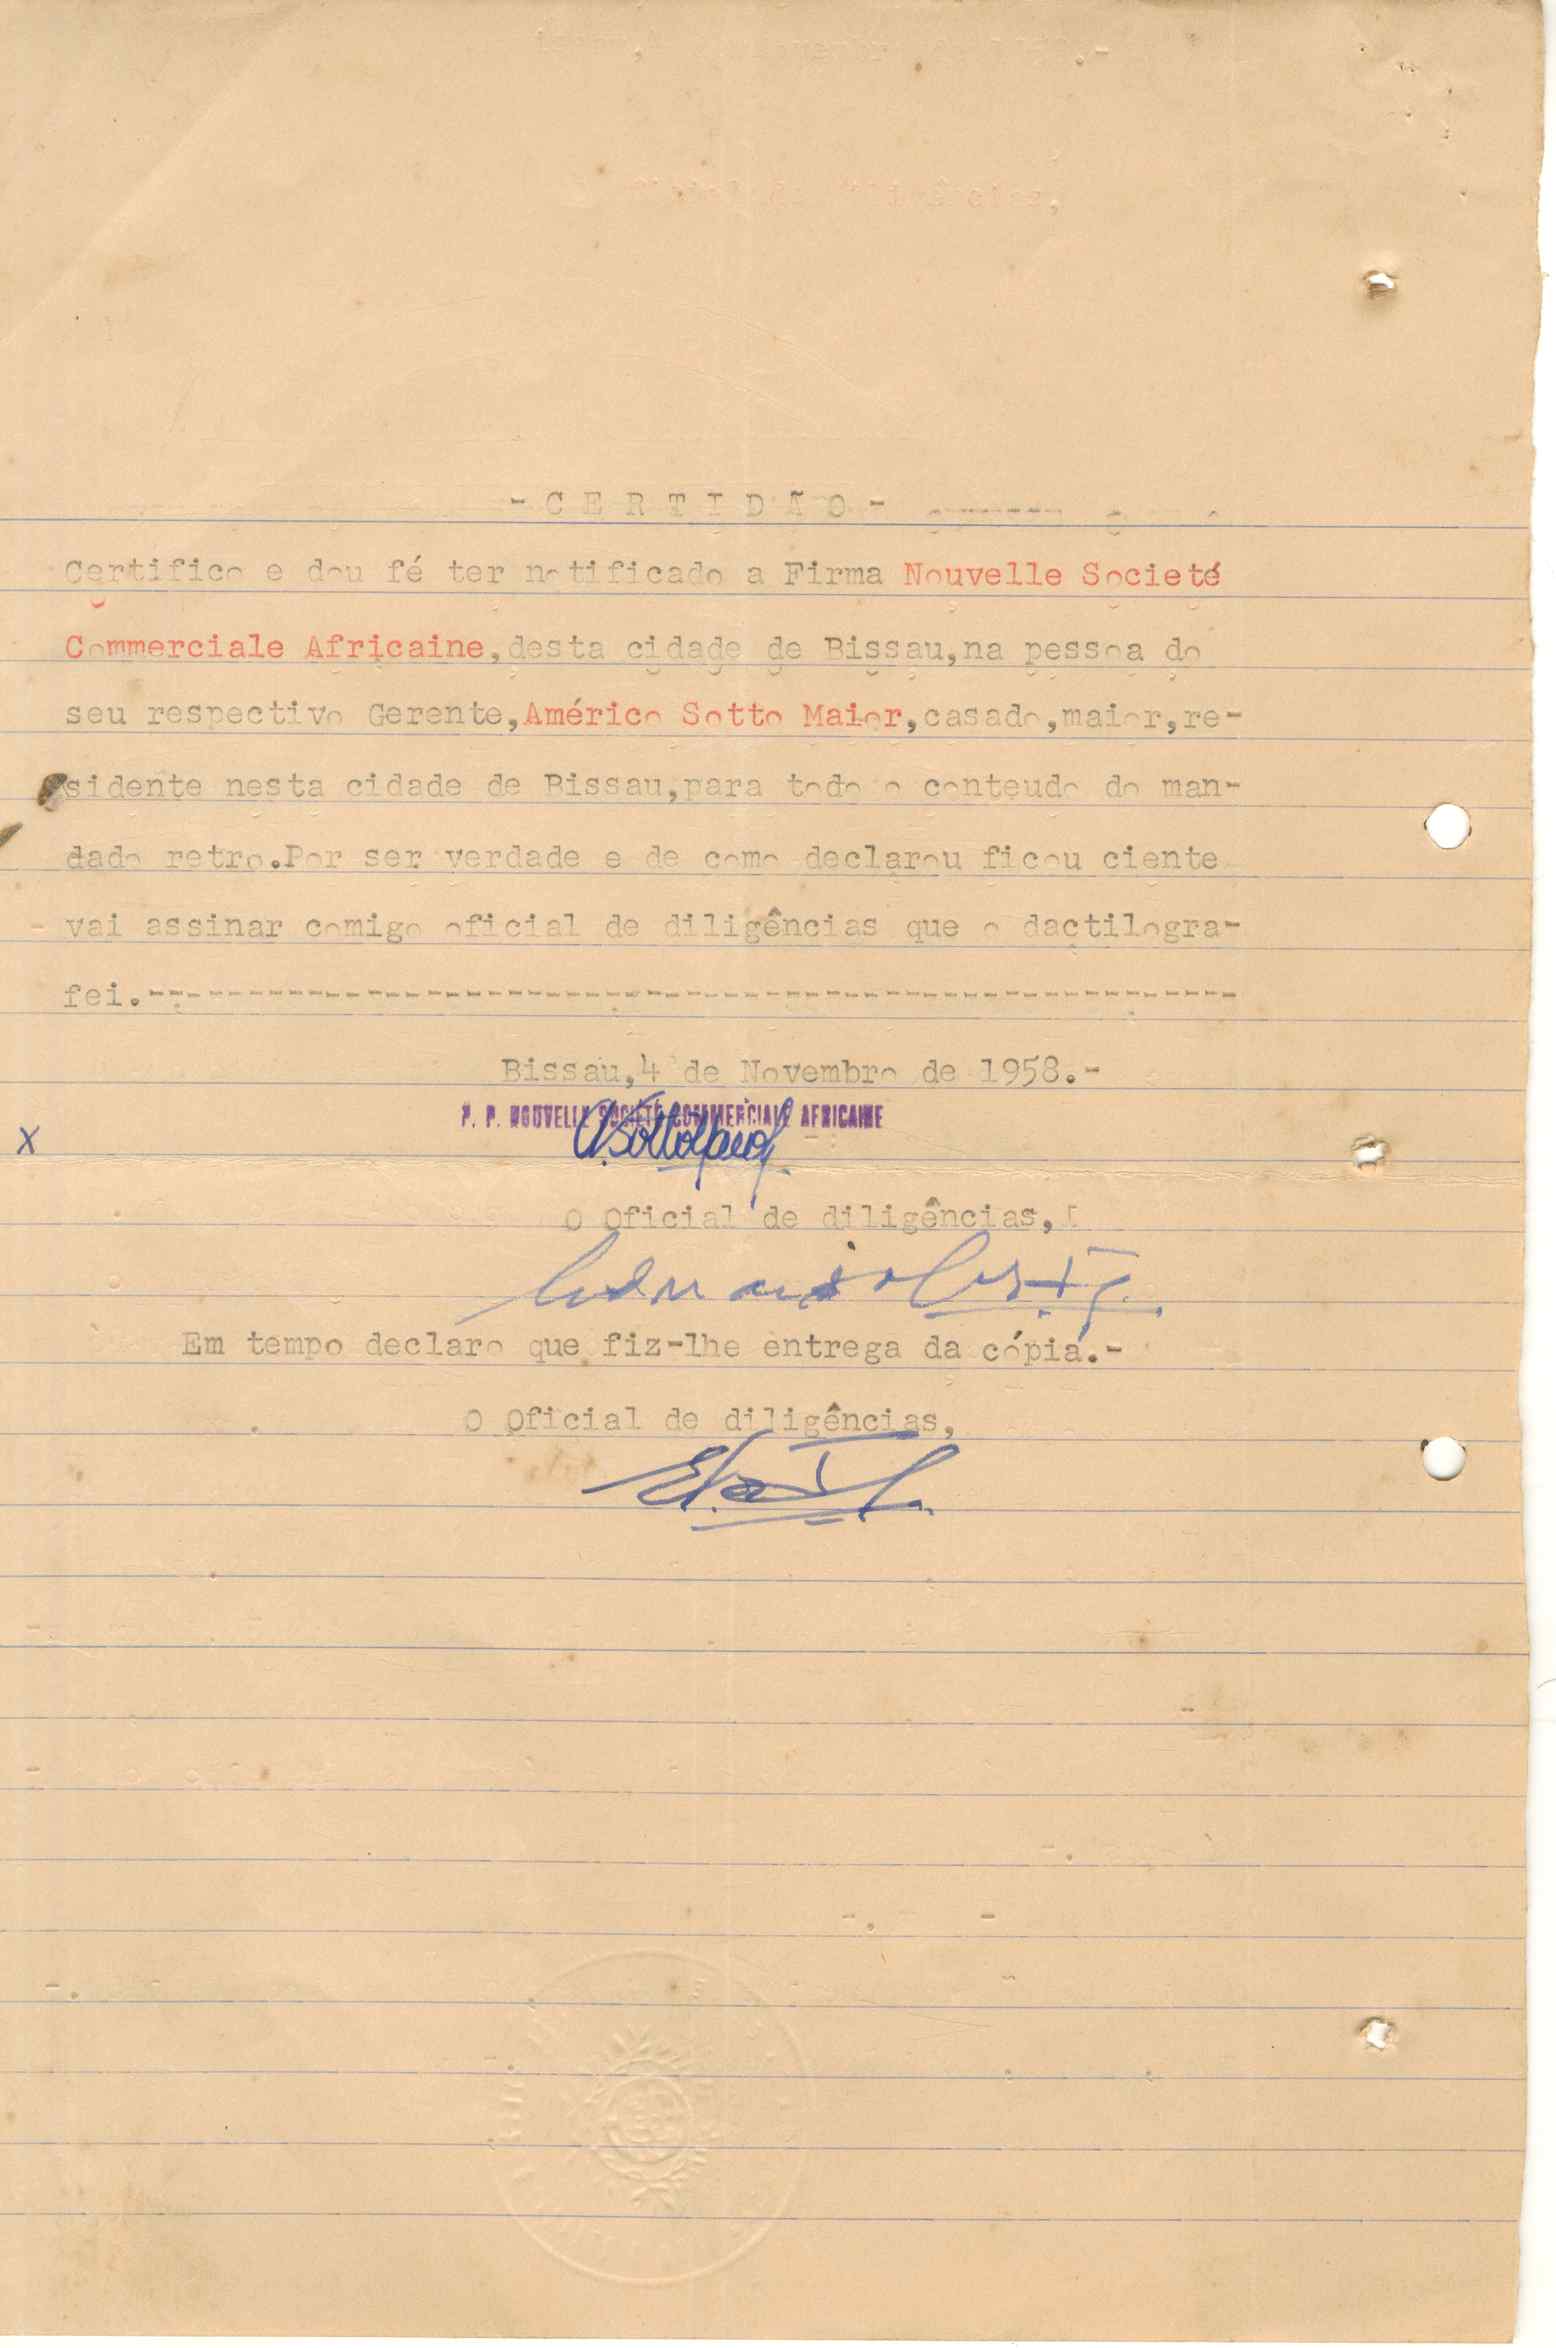 - C E R T I D Ã O -
Certifico e dou fé ter notificado a Firma Nouvelle Societé
Commerciale Africaine, desta cidade de Bissau, na pessoa do
seu respectivo Gerente, Américo Sotto Maior, casado, maior, re-
sidente nesta cidade de Bissau, para todo o conteudo do man-
dado retro. Por ser verdade e de como declarou ficou ciente
vai assinar comigo oficial de diligências que o dactilogra-
fei.-------------------------------------------------------
Bissau, 4 de Novembro de 1958.-
P. P. NOUVELLE SOCIÉTÉ COMMERCIALE AFRICAINE
X
O Oficial de diligências,
Em tempo declaro que fiz-lhe entrega da cópia.-
O Oficial de diligências,